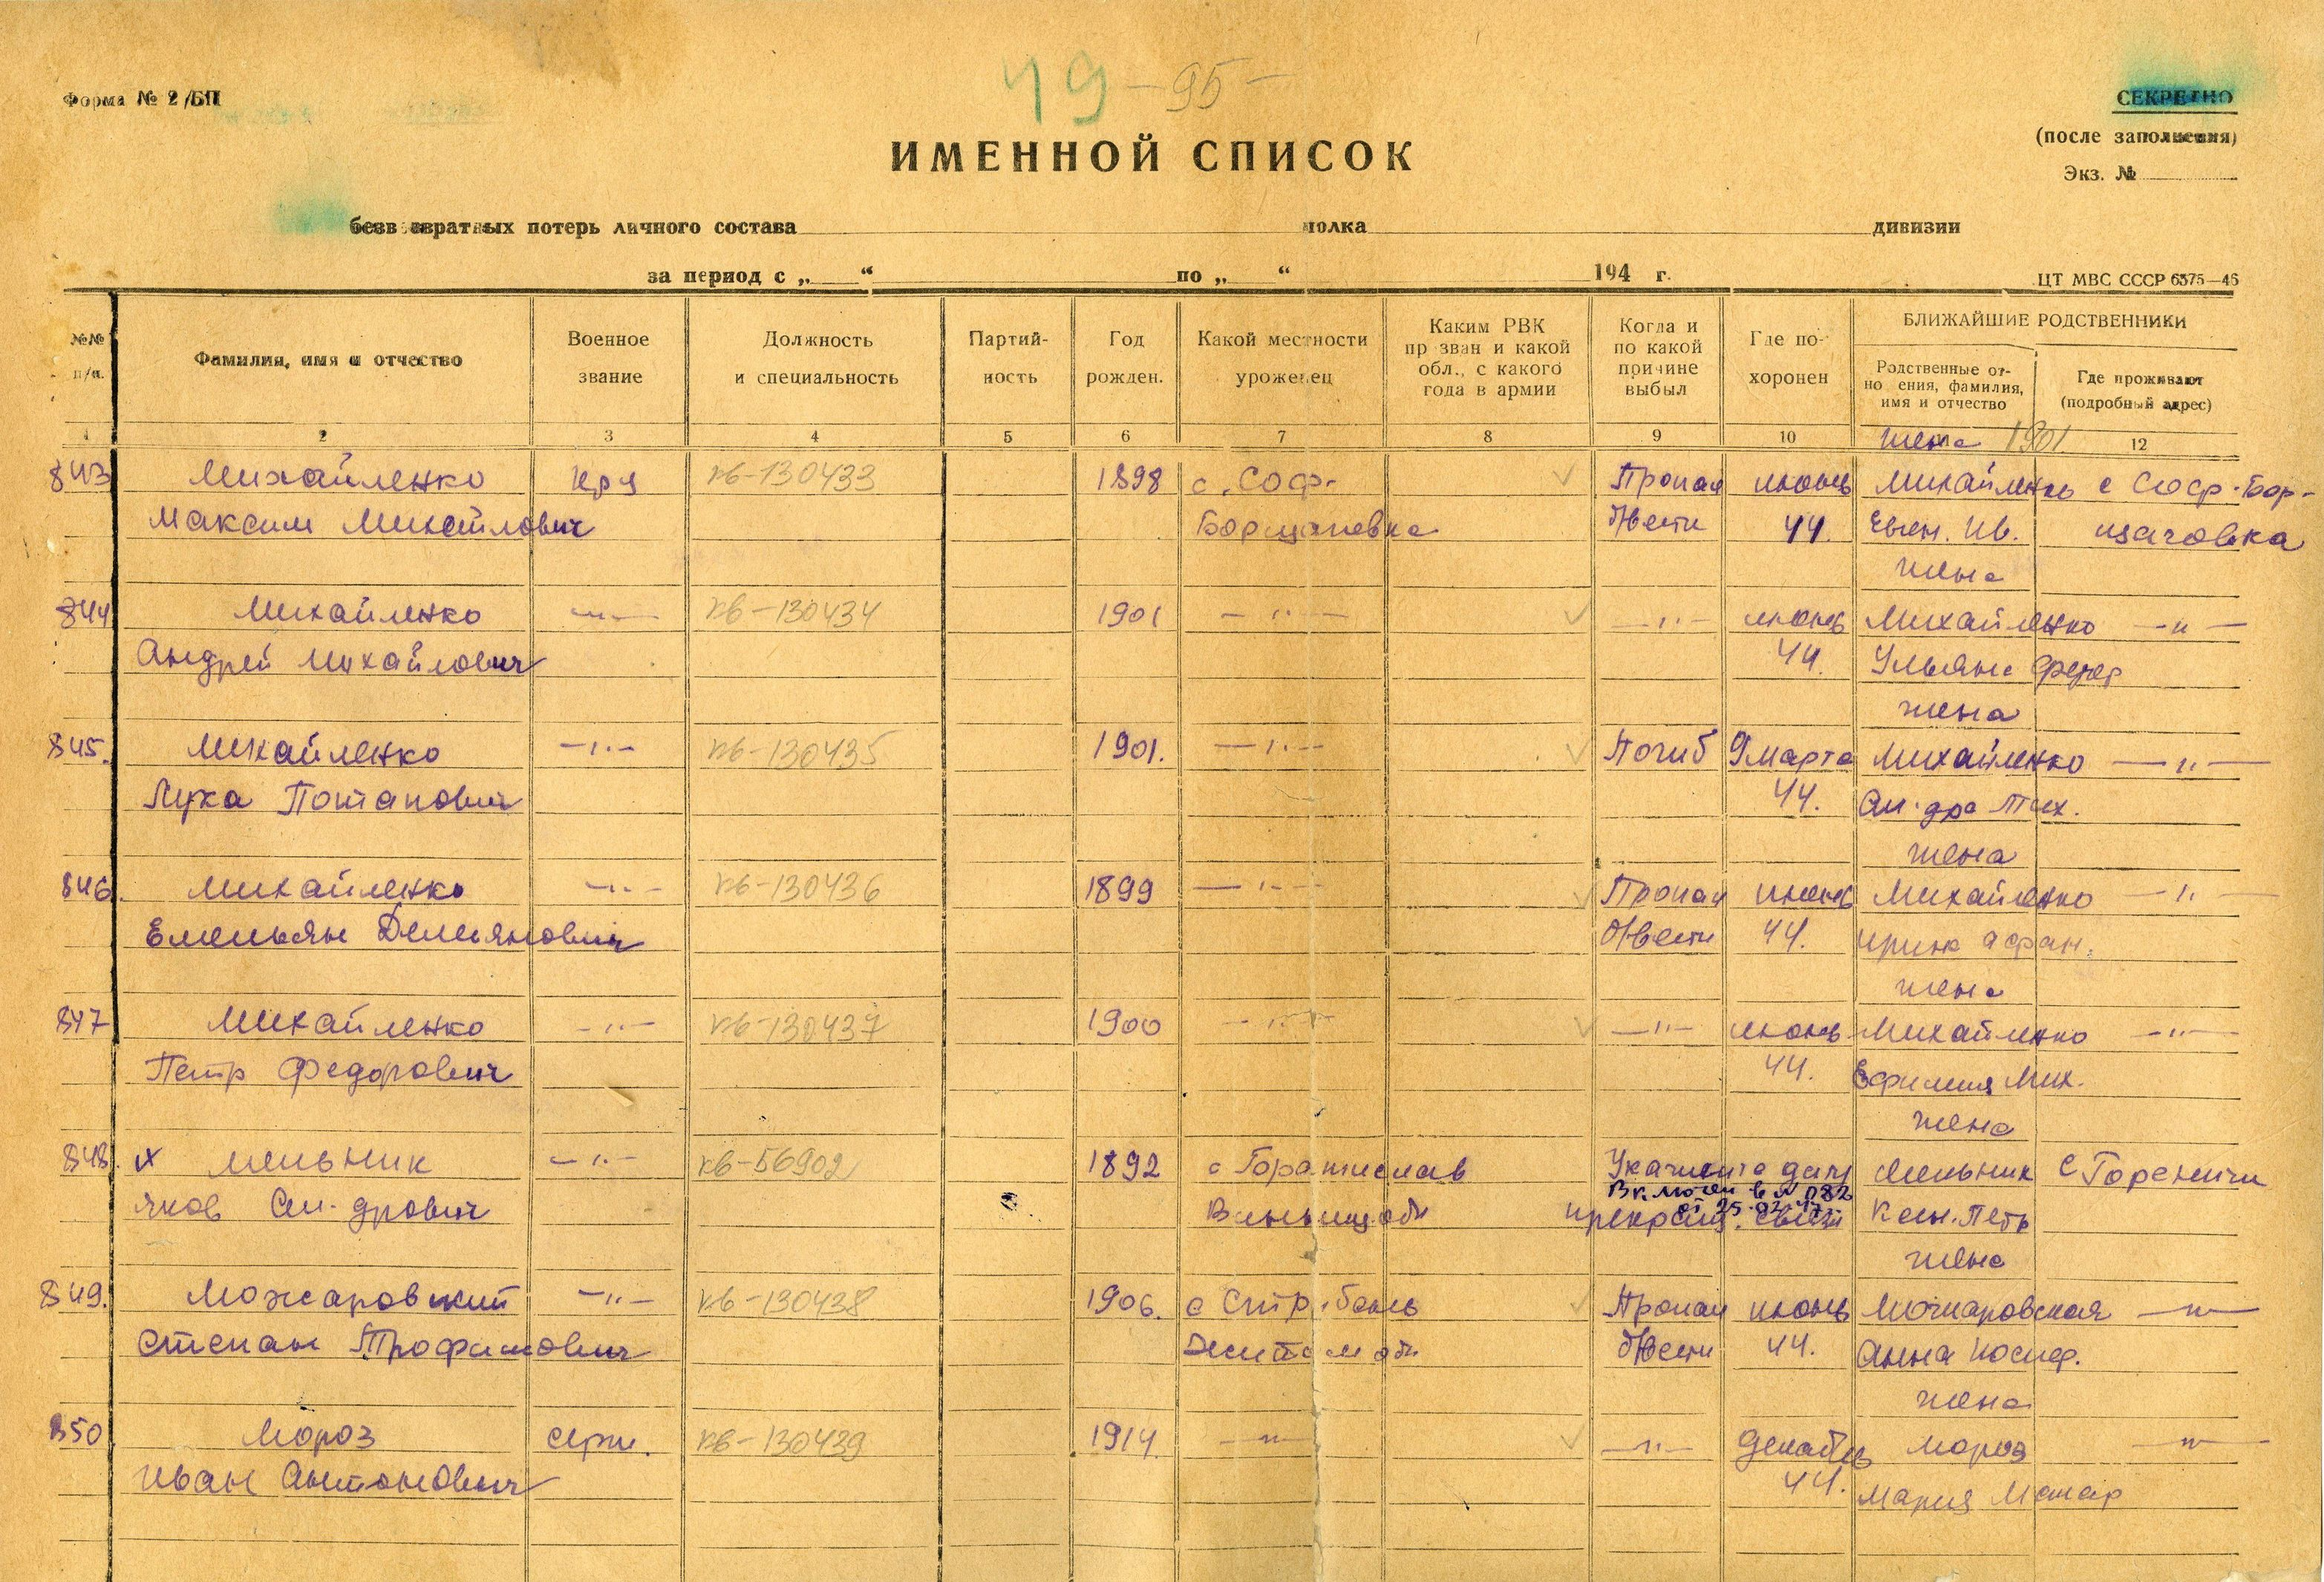 49 -95-
Форма № 2/БП
СЕКРЕТНО
(после заполнения)
Экз. №
ИМЕННОЙ СПИСОК
безвозвратных потерь личного состава полка дивизии
за период с „ “ по „ “ 194 г.
ЦТ МВС СССР 6575—46
№№ п/п.
Фамилия, имя и отчество
Военное звание
Должность и специальность
Партий-ность
Год рожден.
Какой местности уроженец
Каким РВК призван и какой обл., с какого года в армии
Когда и по какой причине выбыл
Где по-хоронен
БЛИЖАЙШИЕ РОДСТВЕННИКИ
Родственные от-ношения, фамилия, имя и отчество
Где проживают (подробный адрес)
1 2 3 4 5 6 7 8 9 10 12
жена 1901.
843 Михайленко кр-ц кв-130433 1898 с. Соф- Пропал июнь Михайленко с Соф-Бор-
Максим Михайлович Борщаговка б/вести 44. Евген. Ив. щаговка
жена
844 Михайленко —"— кв-130434 1901 —"— —"— июнь Михайленко —"—
Андрей Михайлович 44. Ульяна Федор
жена
845. Михайленко —"— кв-130435 1901. —"— Погиб 9 марта Михайленко —"—
Лука Потапович 44. Ал-дра Тих.
жена
846. Михайленко —"— кв-130436 1899 —"— Пропал июнь Михайленко —"—
Емельян Демьянович б/вести 44. Ирина Афан.
жена
847 Михайленко —"— кв-130437 1900 —"— —"— июнь Михайленко —"—
Петр Федорович 44. Ефимия Мих.
жена
848. х Мельник —"— кв-56902 1892 с Мельник с Гореничи
Включен в № 082
от 25.02.47г.
Яков Ал-дрович Винницк обл прекращ. связи Ксен. Петр
жена
849. Можаровский —"— кв-130438 1906. с Пропал июнь Можаровская —"—
Степан Трофимович Житом обл б/вести 44. Анна Иосиф.
жена
850 Мороз серж. кв-130439 1914. —"— —"— декабрь Мороз —"—
Иван Антонович 44. Мария Макар